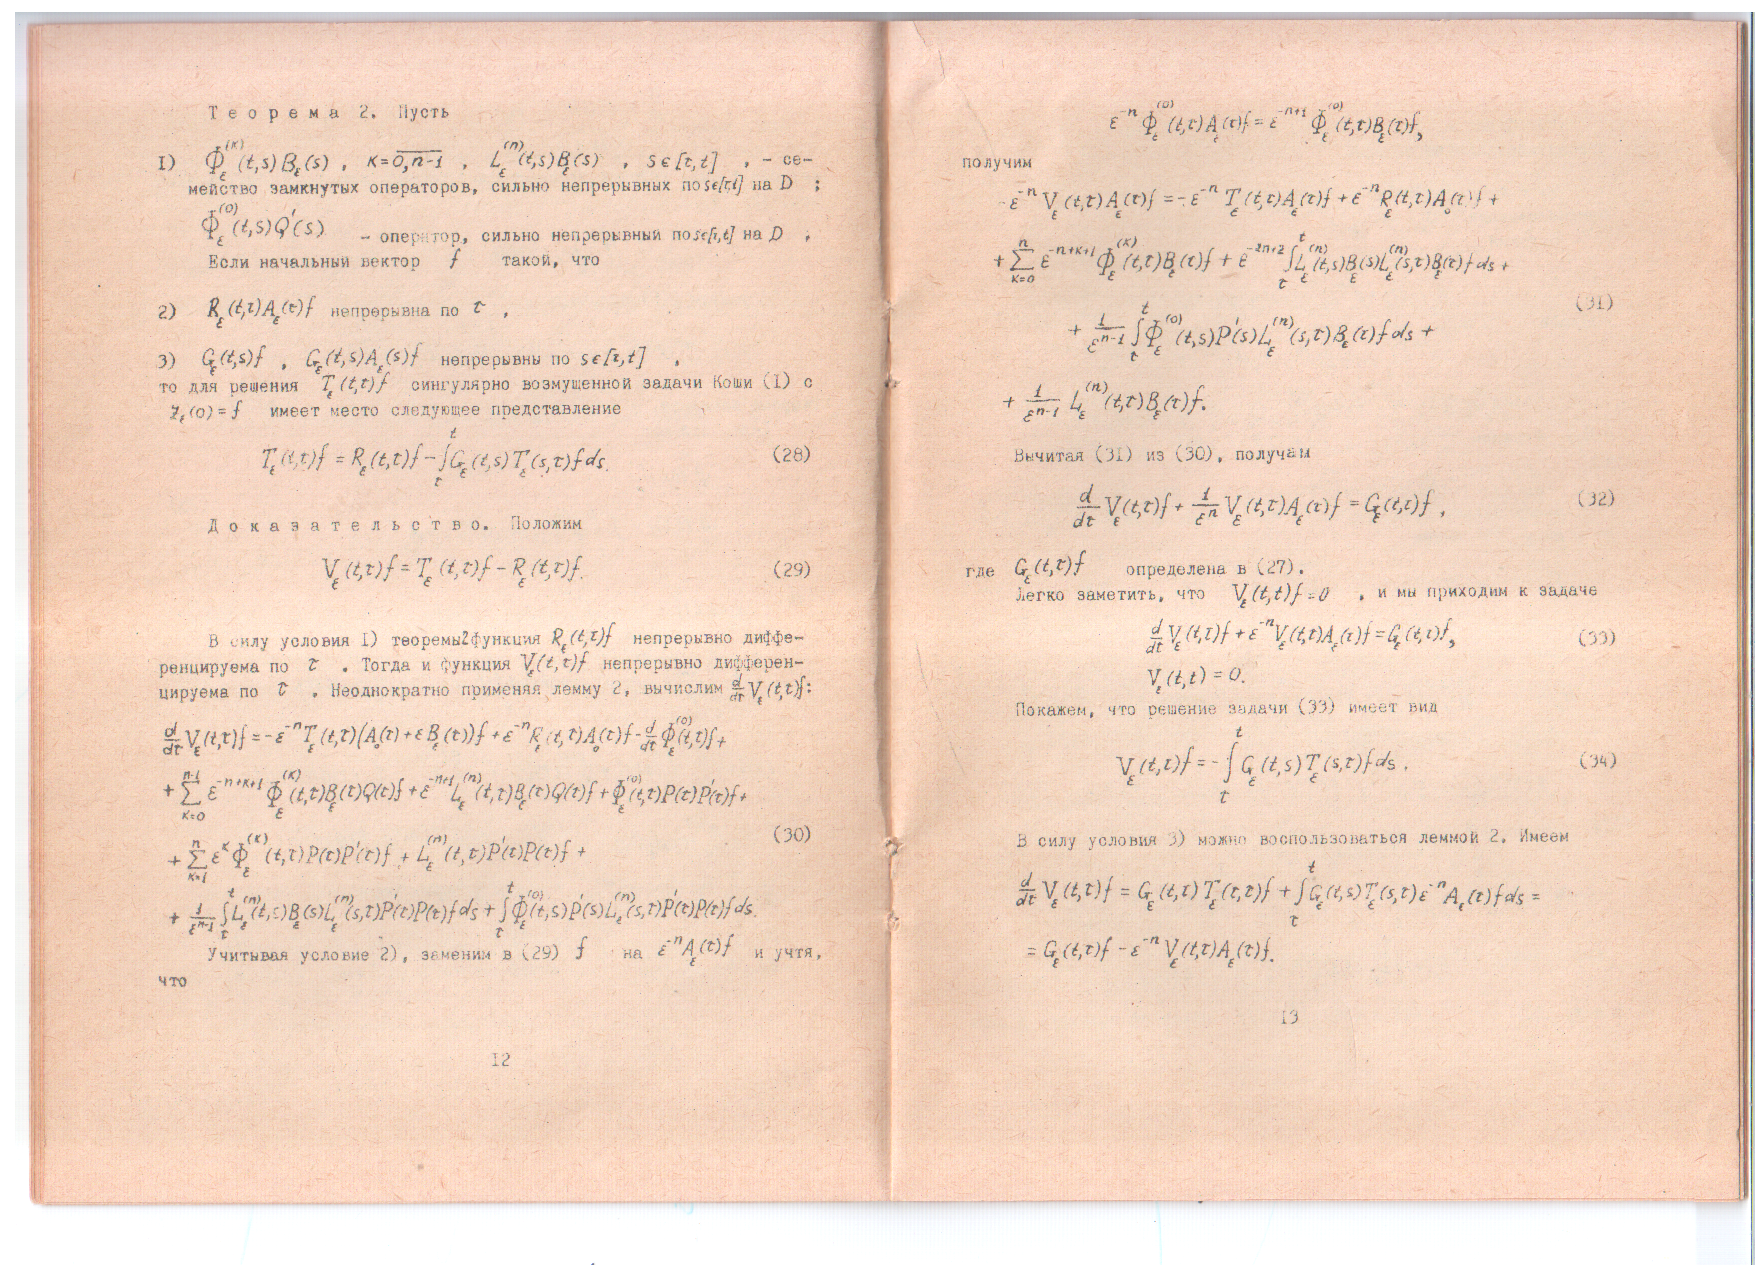 Теорема 2. Пусть
1) Φ_ε^(κ)(t,s)B_ε(s), κ=0,n-1, L_ε^(n)(t,s)B_ε(s), s∈[τ,t], - се-
мейство замкнутых операторов, сильно непрерывных по s∈[τ,t] на D ;
Φ_ε^(0)(t,s)Q'(s) - оператор, сильно непрерывный по s∈[τ,t] на D .
Если начальный вектор f такой, что
2) R_ε(t,τ)A_ε(τ)f непрерывна по τ ,
3) G_ε(t,s)f , G_ε(t,s)A_ε(s)f непрерывны по s∈[τ,t] ,
то для решения T_ε(t,τ)f сингулярно возмущенной задачи Коши (1) с
z_ε(0)=f имеет место следующее представление
T_ε(t,τ)f = R_ε(t,τ)f - ∫_τ^t G_ε(t,s)T_ε(s,τ)f ds. (28)
Доказательство. Положим
V_ε(t,τ)f = T_ε(t,τ)f - R_ε(t,τ)f. (29)
В силу условия 1) теоремы 2 функция R_ε(t,τ)f непрерывно диффе-
ренцируема по τ . Тогда и функция V_ε(t,τ)f непрерывно дифферен-
цируема по τ . Неоднократно применяя лемму 2, вычислим d/dτ V_ε(t,τ)f:
d/dτ V_ε(t,τ)f = -ε^-n T_ε(t,τ)(A_0(τ)+εB_ε(τ))f + ε^-n R_ε(t,τ)A_0(τ)f - d/dτ Φ_ε^(0)(t,τ)f +
+ Σ_{κ=0}^{n-1} ε^{-n+κ+1} Φ_ε^(κ)(t,τ)B_ε(τ)Q(τ)f + ε^{-n+1} L_ε^(n)(t,τ)B_ε(τ)Q(τ)f + Φ_ε^(0)(t,τ)P(τ)P'(τ)f +
+ Σ_{κ=1}^n ε^κ Φ_ε^(κ)(t,τ)P(τ)P'(τ)f + L_ε^(n)(t,τ)P'(τ)P(τ)f + (30)
+ 1/ε^{n-1} ∫_τ^t L_ε^(n)(t,s)B_ε(s)L_ε^(n)(s,τ)P'(τ)P(τ)f ds + ∫_τ^t Φ_ε^(0)(t,s)P'(s)L_ε^(n)(s,τ)P'(τ)P(τ)f ds.
Учитывая условие 2), заменим в (29) f на ε^-n A_ε(τ)f и учтя,
что
12
ε^-n Φ_ε^(0)(t,τ)A_ε(τ)f = ε^{-n+1} Φ_ε^(0)(t,τ)B_ε(τ)f,
получим
-ε^-n V_ε(t,τ)A_ε(τ)f = -ε^-n T_ε(t,τ)A_ε(τ)f + ε^-n R_ε(t,τ)A_0(τ)f +
+ Σ_{κ=0}^n ε^{-n+κ+1} Φ_ε^(κ)(t,τ)B_ε(τ)f + ε^{-2n+2} ∫_τ^t L_ε^(n)(t,s)B_ε(s)L_ε^(n)(s,τ)B_ε(τ)f ds +
(31)
+ 1/ε^{n-1} ∫_τ^t Φ_ε^(0)(t,s)P'(s)L_ε^(n)(s,τ)B_ε(τ)f ds +
+ 1/ε^{n-1} L_ε^(n)(t,τ)B_ε(τ)f.
Вычитая (31) из (30), получам
d/dτ V_ε(t,τ)f + 1/ε^n V_ε(t,τ)A_ε(τ)f = G_ε(t,τ)f , (32)
где G_ε(t,τ)f определена в (27).
Легко заметить, что V_ε(t,t)f=0 , и мы приходим к задаче
d/dτ V_ε(t,τ)f + ε^-n V_ε(t,τ)A_ε(τ)f = G_ε(t,τ)f, (33)
V_ε(t,t) = 0.
Покажем, что решение задачи (33) имеет вид
V_ε(t,τ)f = - ∫_τ^t G_ε(t,s)T_ε(s,τ)f ds . (34)
В силу условия 3) можно воспользоваться леммой 2. Имеем
d/dτ V_ε(t,τ)f = G_ε(t,τ)T_ε(τ,τ)f + ∫_τ^t G_ε(t,s)T_ε(s,τ)ε^-n A_ε(τ)f ds =
= G_ε(t,τ)f - ε^-n V_ε(t,τ)A_ε(τ)f.
13